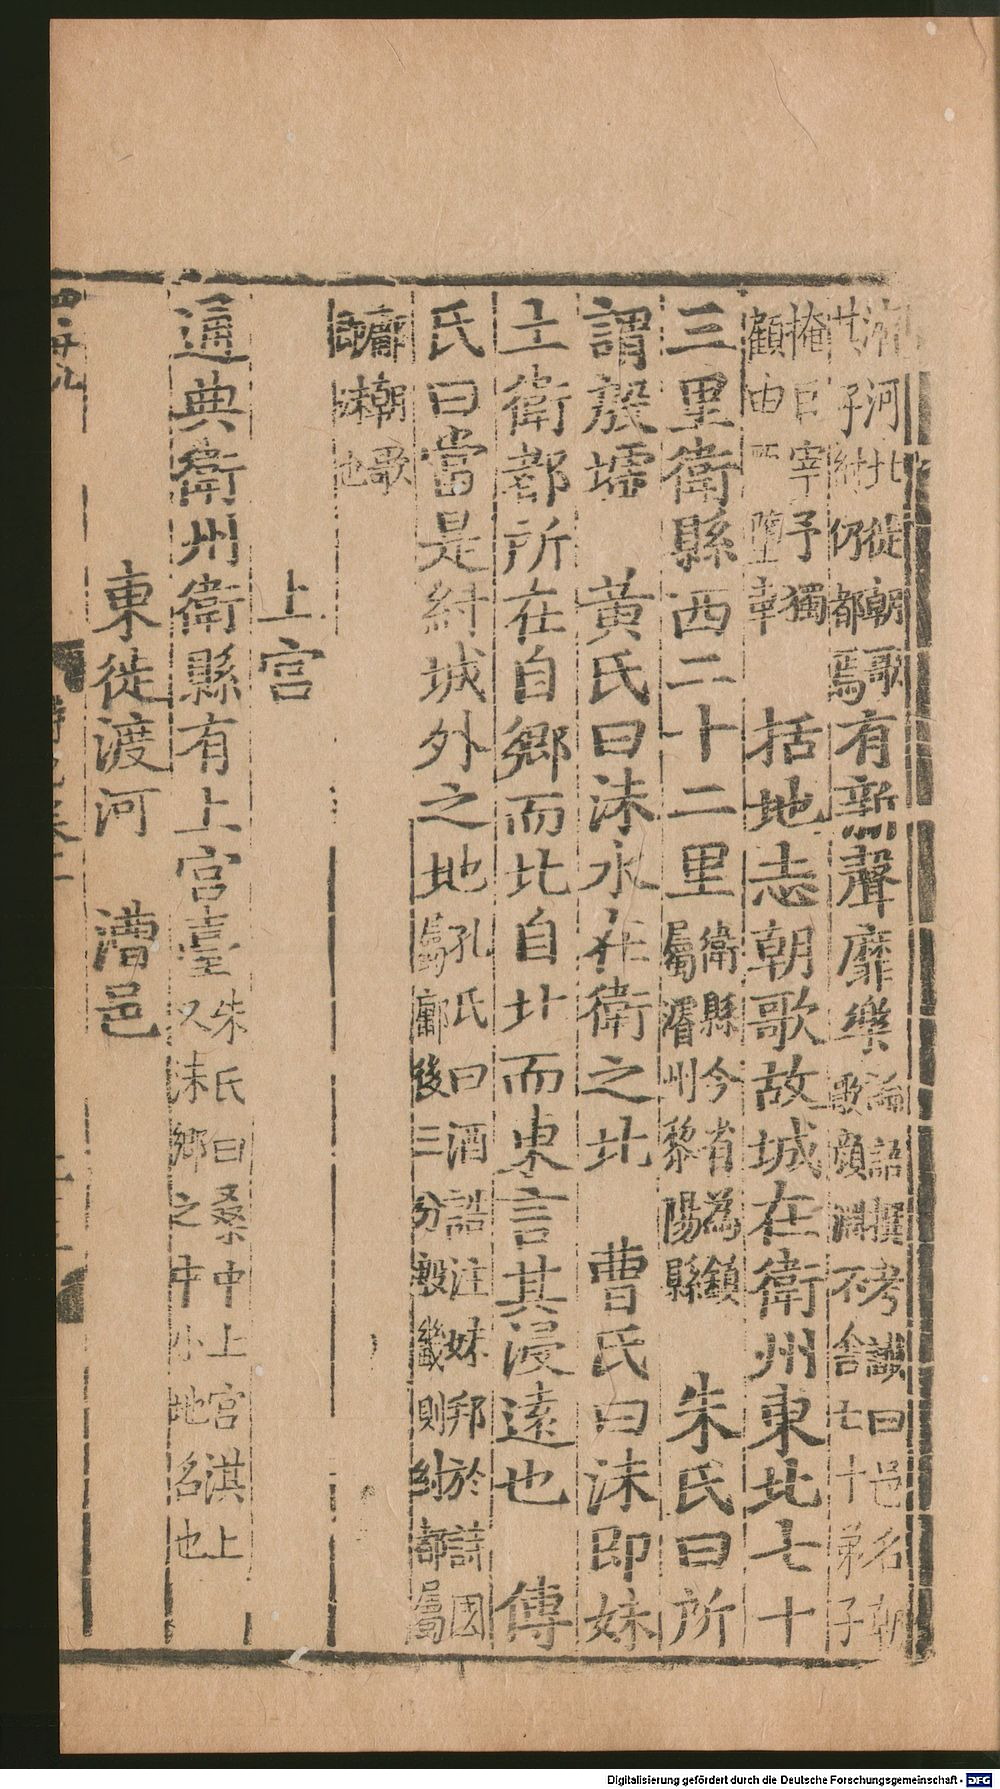 河北從朝歌
其子紂仍都焉有新聲靡樂論語撰考讖曰邑名朝
歌顏淵不舍七十弟子
掩目宰予獨
顧由 墮車 括地志朝歌故城在衛州東北七十
三里衛縣西二十二里衛縣今省為鎮
屬濬州黎陽縣 朱氏曰所
謂殷墟 黃氏曰沬水在衛之北 曹氏曰沬即妹
土衛都所在自鄉而北自北而東言其浸遠也 傳
氏曰當是紂城外之地孔氏曰酒誥注妹邦於詩國
屬鄘後三分殷畿則紂都屬
鄘朝歌
即沬也
上宮
通典衛州衛縣有上宮臺朱氏曰桑中上宮淇上
又沬鄉之中小地名也
東徙渡河 漕邑
Digitalisierung gefördert durch die Deutsche Forschungsgemeinschaft - DFG